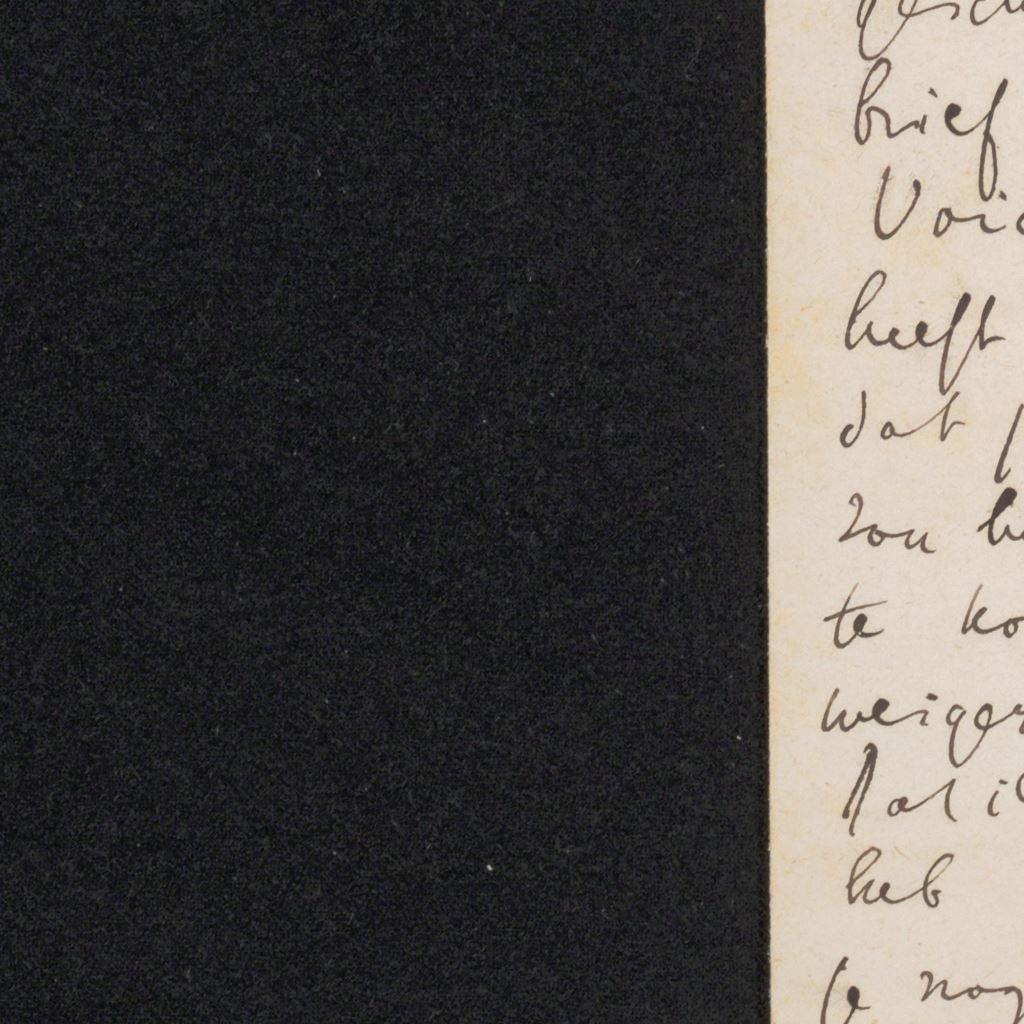 brief
Voic
heeft
dat
zou he
te ko
weiger
Dat i
heb
je nog